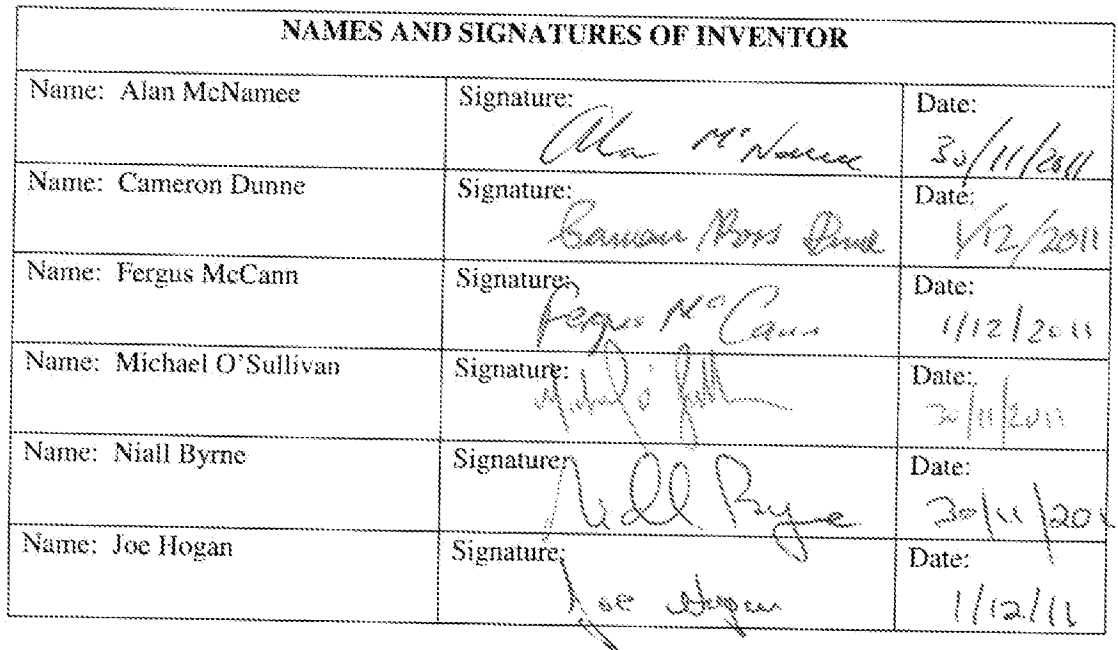 NAMES AND SIGNATURES OF INVENTOR
Name: Alan McNamee Signature: Date:
Alan McNamee 30/11/2011
Name: Cameron Dunne Signature: Date:
Cameron Ross Dunne 1/12/2011
Name: Fergus McCann Signature: Date:
Fergus McCann 1/12/2011
Name: Michael O'Sullivan Signature: Date:
30/11/2011
Name: Niall Byrne Signature: Date:
Niall Byrne 30/11/201
Name: Joe Hogan Signature: Date:
Joe Hogan 1/12/11